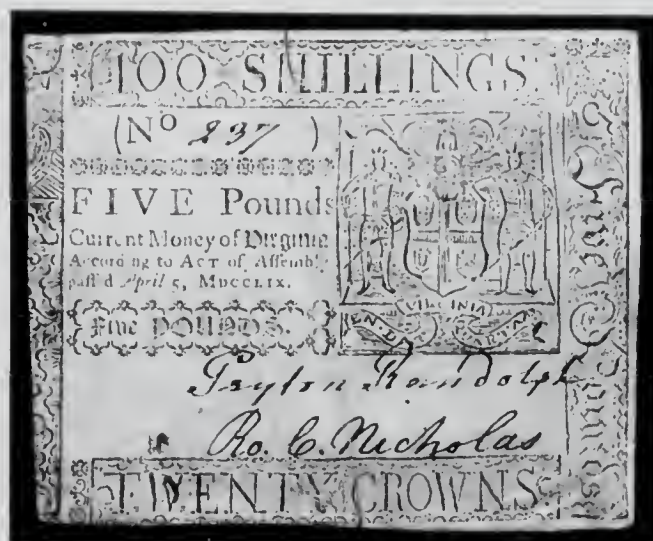 100 SHILLINGS
(No 237)
FIVE Pounds
Current Money of Virginia
According to ACT of Assembly
pass'd April 5, MDCCLIX.
Five POUNDS.
VIRGINIA
EN DAT
Peyton Randolph
Ro. C. Nicholas
TWENTY CROWNS